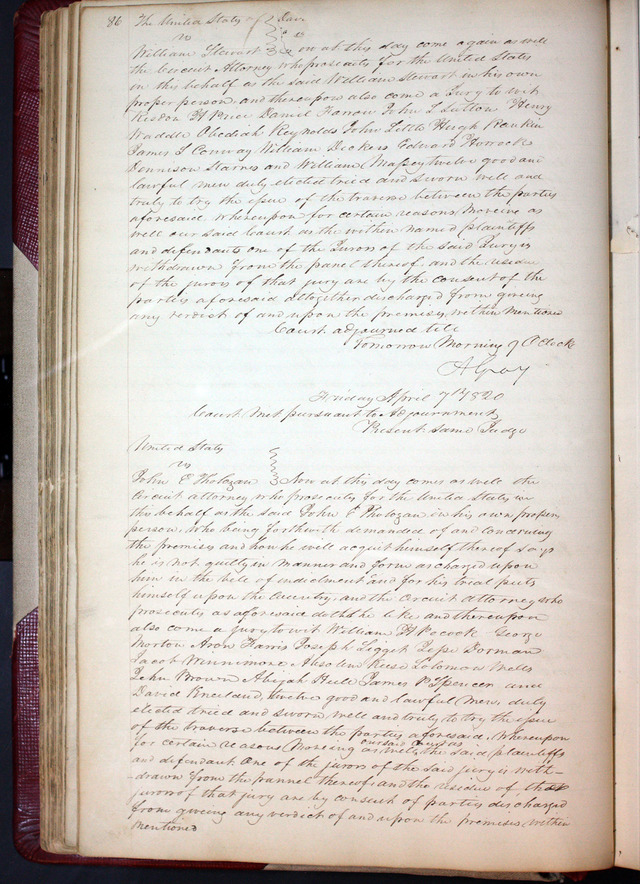 86 The United States
vs
William Stewart now at this day come again as well
the Circuit Attorney who prosecutes for the United States
in this behalf as the said William Stewart in his own
proper person and thereupon also come a Jury to wit
Risdon H Price Daniel Farrow John L Sutton Henry
Waddle Obediah Reynolds John Little Hugh Rankin
James S Conway William Dickens Edward Horrocks
Dennison Starnes and William Massey twelve good and
lawful men duly elected tried and sworn well and
truly to try the issue of the traverse between the parties
aforesaid whereupon for certain reasons moveing as
well our said Court as the within named plaintiffs
and defendants one of the Jurors of the said Jury is
withdrawn from the panel thereof and the residue
of the jurors of that jury are by the consent of the
parties aforesaid altogether discharged from giveing
any verdict of and upon the premises within mentioned
Court adjourned till
Tomorrow Morning 9 O Clock
A Gray
Friday April 7th 1820
Court met pursuant to Adjournment
Present same Judge
United States
vs
John E Tholozan Now at this day comes as well the
Circuit attorney who prosecutes for the United States in
this behalf as the said John E Tholozan in his own proper
person, who being forthwith demanded of and concerning
the premises and how he will acquit himself thereof says
he is not guilty in manner and form as charged upon
him in the bill of indictment and for his trial puts
himself upon the Country, and the Circuit Attorney who
prosecutes as aforesaid doth the like and thereupon
also come a jury to wit William H Pocock George
Morton Aron Harris Joseph Ligget Jesse Dorman
Jacob Winnimore Absolem Keese Solomon Wells
John Brown Abijah Hull James P Spencer and
David Kneeland, twelve good and lawful men, duly
elected tried and sworn well and truly to try the issue
of the traverse between the parties aforesaid. Whereupon
for certain reasons moveing as well our said Court as the said plaintiffs
and defendant One of the jurors of the said jury is with-
drawn from the pannel thereof and the residue of the
jurors of that jury are by consent of parties discharged
from giveing any verdict of and upon the premises within
mentioned